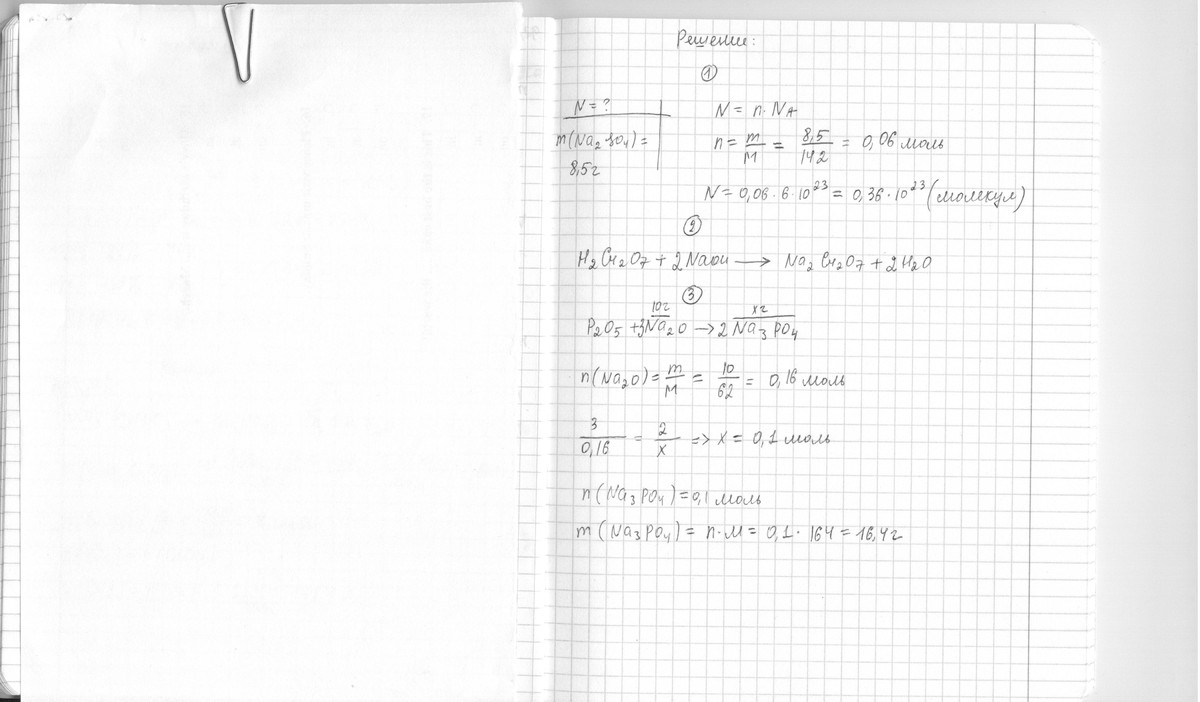 Решение:
1
N = ?
m(Na₂SO₄) =
8,5г
N = n · NA
n = m/M = 8,5/142 = 0,06 моль
N = 0,06 · 6 · 10²³ = 0,36 · 10²³ (молекул)
2
H₂Cr₂O₇ + 2NaOH ⟶ Na₂Cr₂O₇ + 2H₂O
3
10г xг
P₂O₅ + 3Na₂O → 2Na₃PO₄
n(Na₂O) = m/M = 10/62 = 0,16 моль
3/0,16 = 2/x => x = 0,1 моль
n(Na₃PO₄) = 0,1 моль
m(Na₃PO₄) = n · M = 0,1 · 164 = 16,4г